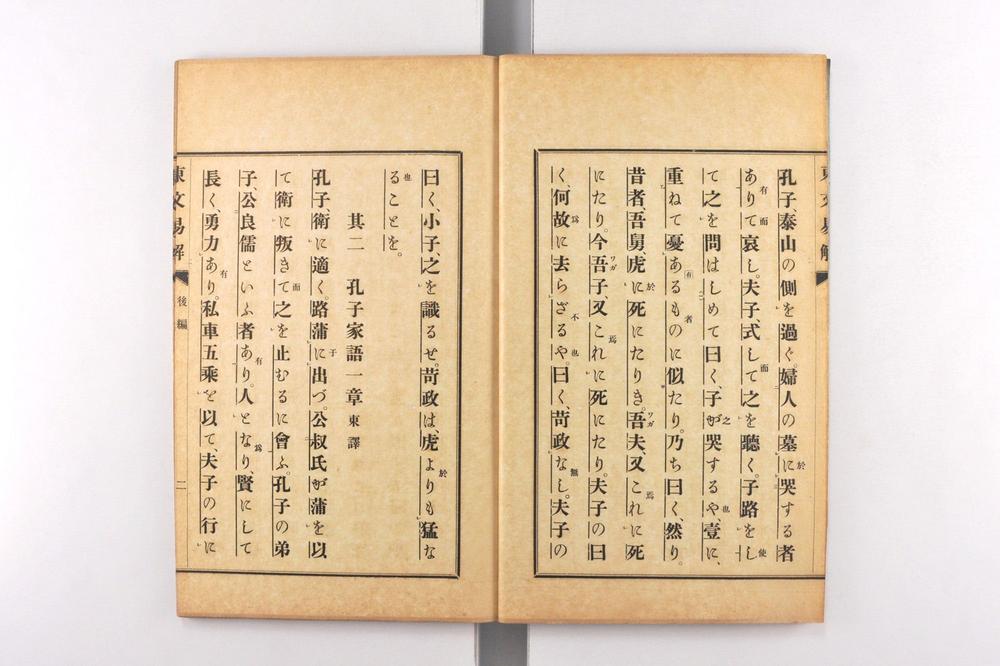 孔子泰山の側を過ぐ、婦人の墓に哭する者
ありて哀し。夫子、式して之を聽く。子路をし
て之を問はしめて曰く、子が哭するや、壹に、
重ねて憂あるものに似たり。乃ち曰く、然り。
昔者、吾舅、虎に死にたりき。吾夫、又これに死
にたり。今吾子、又これに死にたり。夫子の曰
く、何故に去らざるや。曰く、苛政なし。夫子の
曰く、小子、之を識るせ。苛政は、虎よりも猛な
ることを。
其二 孔子家語一章 東譯
孔子、衛に適く。路蒲に出づ。公叔氏が蒲を以
て衛に叛きて之を止むるに會ふ。孔子の弟
子、公良儒といふ者あり。人となり、賢にして
長く、勇力あり。私車五乘を以て、夫子の行に
東文易解
後編
二